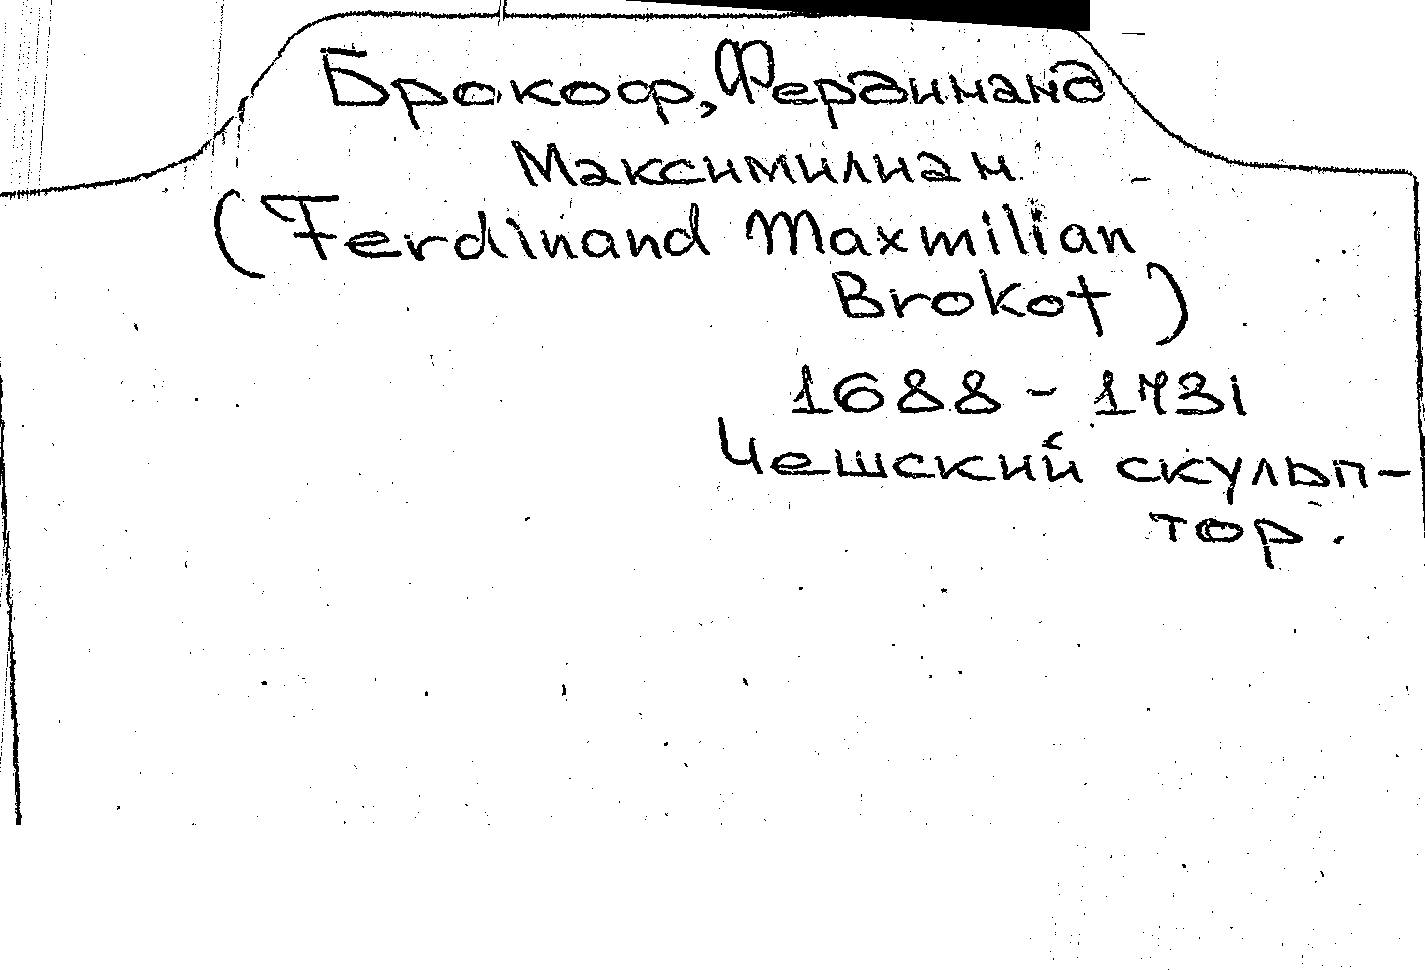 Брокоф, Фердинанд
Максимилиан
(Ferdinand Maxmilian
Brokof)
1688 - 1731
Чешский скульп-
тор.